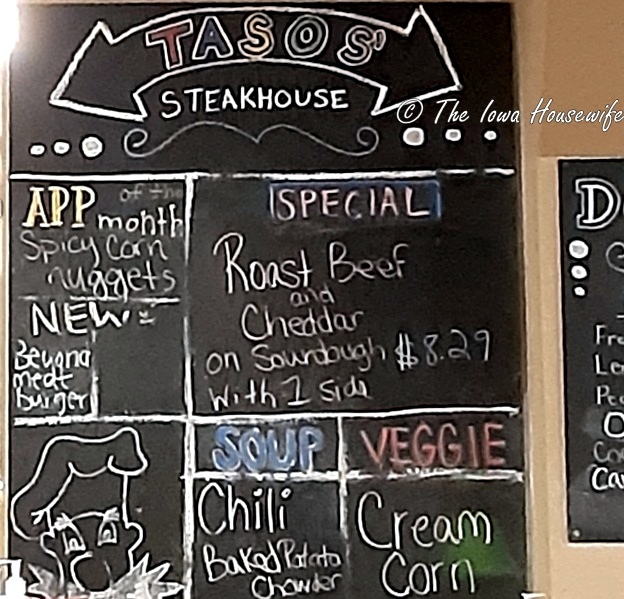 TASOS'
STEAKHOUSE
© The Iowa Housewife
APP of the
month
Spicy Corn
nuggets
NEW
Beyond
meat
burger
SPECIAL
Roast Beef
and
Cheddar
on Sourdough $8.29
With 1 Side
SOUP
Chili
Baked Potato
Chowder
VEGGIE
Cream
Corn
D
Fre
Le
Pe
Ca